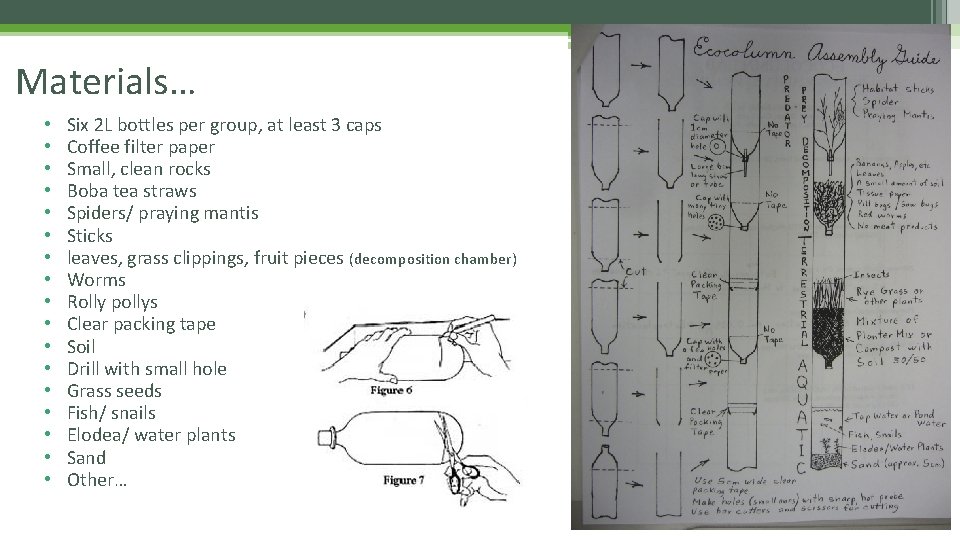 Materials…
• Six 2L bottles per group, at least 3 caps
• Coffee filter paper
• Small, clean rocks
• Boba tea straws
• Spiders/ praying mantis
• Sticks
• leaves, grass clippings, fruit pieces (decomposition chamber)
• Worms
• Rolly pollys
• Clear packing tape
• Soil
• Drill with small hole
• Grass seeds
• Fish/ snails
• Elodea/ water plants
• Sand
• Other…
Figure 6
Figure 7
Ecocolumn Assembly Guide
Cut
Cap with
1cm
diameter
hole
long straw
or tube
No
Tape
Cap with
many tiny
holes
No
Tape
Clear
Packing
Tape
No
Tape
Cap with
a few holes
and
filter
paper
Clear
Packing
Tape
PREDATOR
PREY
DECOMPOSITION
TERRESTRIAL
AQUATIC
Habitat sticks
Spider
Praying Mantis
Bananas, Apples, etc
Leaves
A small amount of soil
Tissue paper
Pill bugs / Sow bugs
Red worms
No meat products
Insects
Rye Grass or
other plants
Mixture of
Planter Mix or
Compost with
Soil 50/50
Tap Water or Pond
Water
Fish, Snails
Elodea/Water Plants
Sand (approx. 5cm)
Use 5cm wide clear
packing tape
Make holes (small ones) with sharp, hot probe
Use box cutters and scissors for cutting